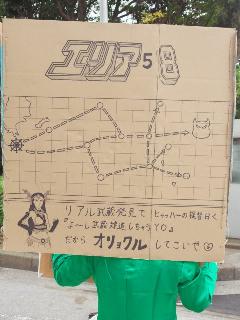 エリア5
リアル武蔵発見て ヒャッハーの提督曰く
『よーし武蔵建造しちゃうYO』
だから オリョクル してこいで